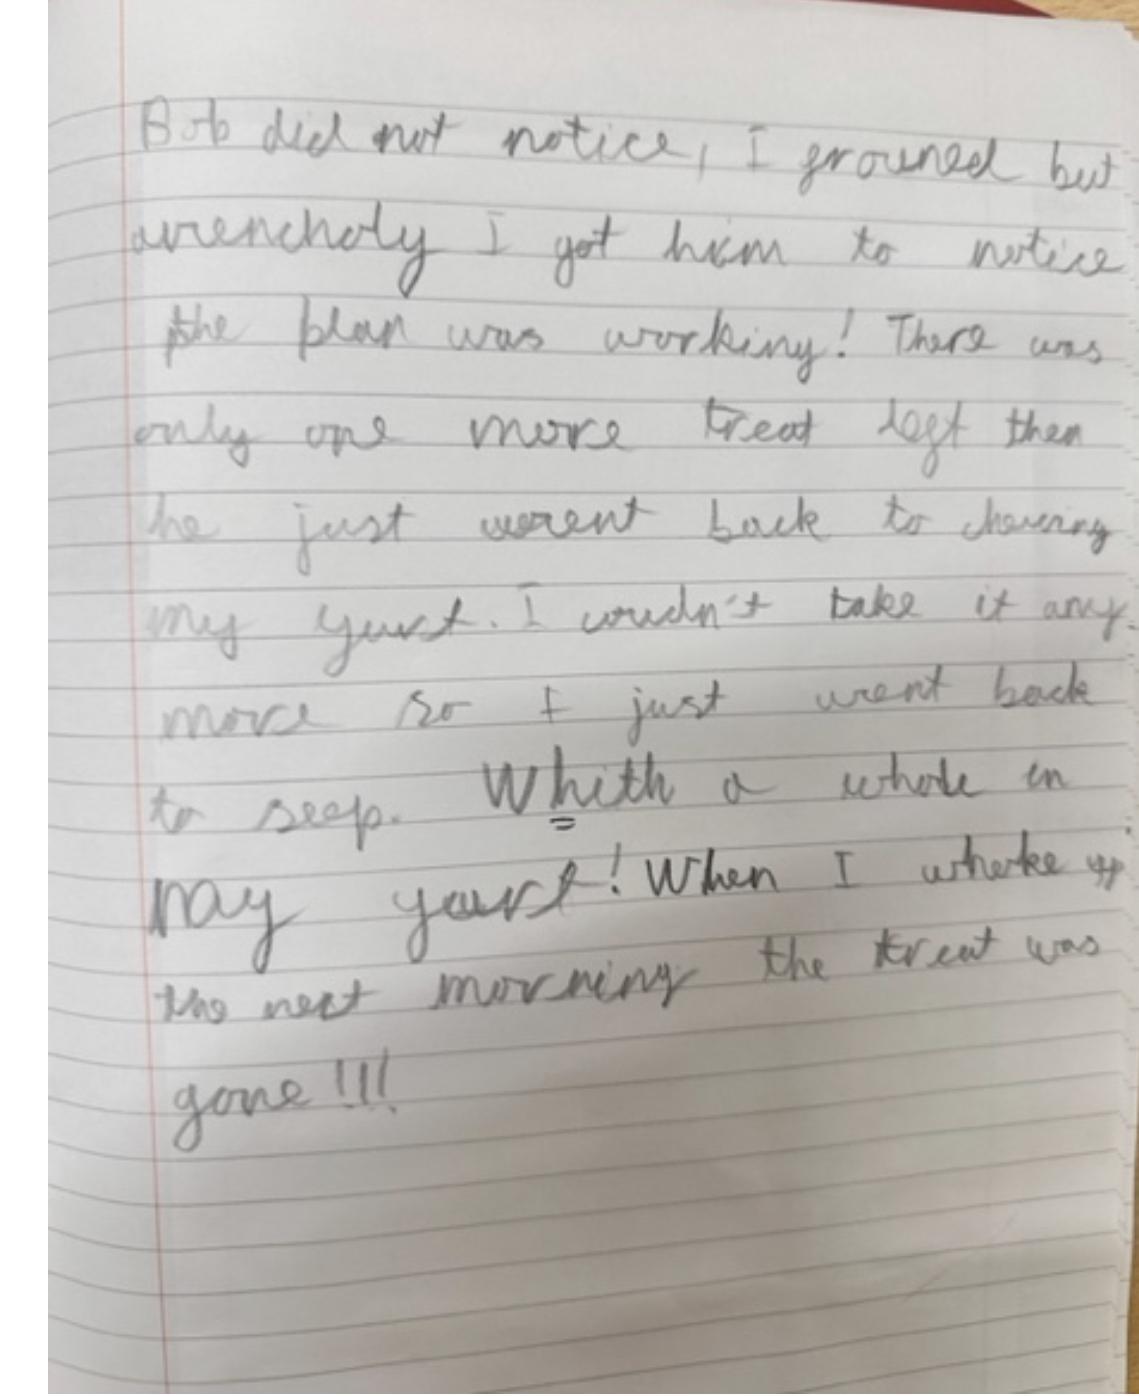 Bob did not notice, I grouned but
I got him to notice
the plan was working! There was
only one more treat left then
he just werent back to
my yurt. I coudn't take it any
more so I just went back
to seep. Whith a whole in
may yourt! When I wheke up
the next morning the treat was
gone!!!